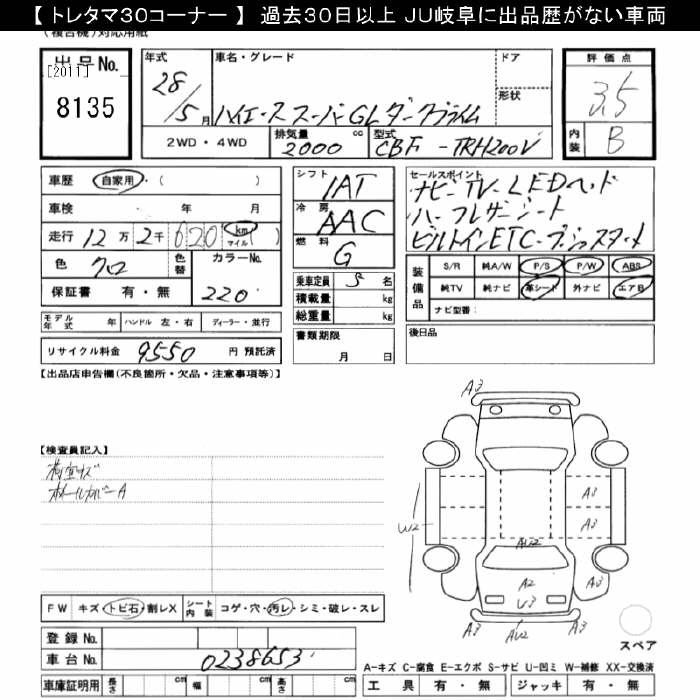 【 トレタマ30コーナー 】 過去30日以上 JU岐阜に出品歴がない車両
(複合機)対応用紙
出品No.
[2011]
8135
年式
28/5月
車名・グレード
ハイエーススーパーGLダークプライム
ドア
形状
2WD・4WD
排気量 cc
2000
型式
CBF-TRH200V
評価点
3.5
内装
B
車歴 自家用・( )
車検 ・ 年 月
走行 12万2千020 km マイル( )
色 クロ 色替 カラーNo.
保証書 有・無 220
モデル年式 年 ハンドル 左・右 ディーラー・並行
リサイクル料金 9550 円 預託済
シフト
IAT
冷房
AAC
燃料
G
乗車定員 5 名
積載量 kg
総重量 kg
書類期限
月 日
セールスポイント
ナビ-TV-LEDヘッド
ハーフレザーシート
ビルトインETC-プッシュスタート
装備品
S/R 純A/W P/S P/W ABS
純TV 純ナビ 革シート 外ナビ エアB
ナビ型番:
後日品
【出品店申告欄(不良箇所・欠品・注意事項等)】
【検査員記入】
荷室キズ
ホイールカバーA
A3
A3
W2
A3
A3
AU2
A2
U3
A3
A3
AU2
A3
スペア
FW キズ・トビ石・割レX シート内装 コゲ・穴・汚レ・シミ・破レ・スレ
登録No.
車台No. 0238653
車庫証明用 長さ cm 幅 cm 高さ cm
A-キズ C-腐食 E-エクボ S-サビ U-凹ミ W-補修 XX-交換済
工具 有・無 ジャッキ 有・無